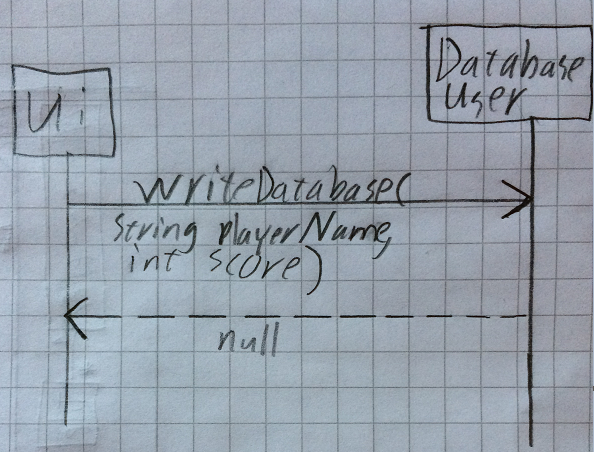 Ui
Database
User
writeDatabase(
String playerName,
int score)
null